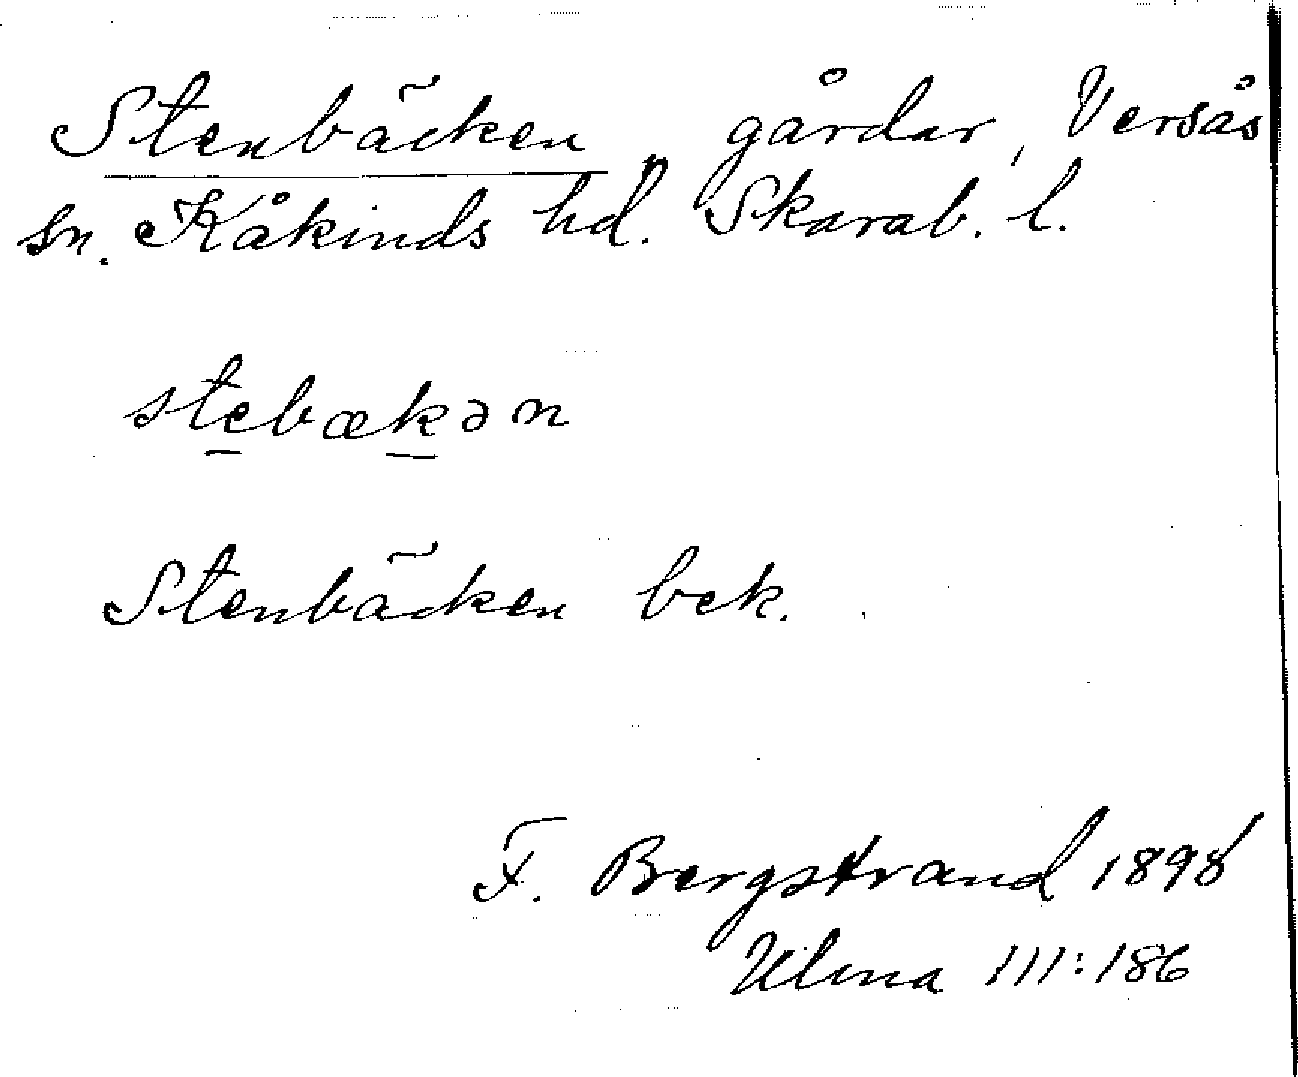 Stenbäcken gårdar, Versås
sn. Kåkinds hd. Skarab. l.
stebækən
Stenbäcken bek.
F. Bergstrand 1898
Ulma 111:186